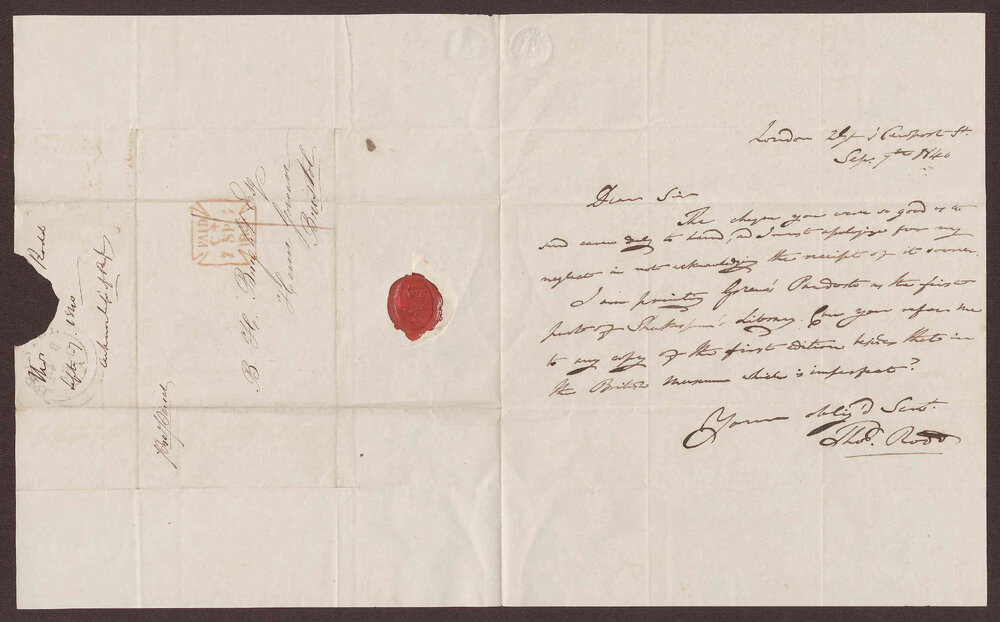 London 29 Gt Newport St.
Sep. 7th 1840
Dear Sir
The cheque you were so good as to
send came duly to hand, & I must apologize for my
neglect in not acknowledging the receipt of it sooner.
I am printing Greene's Pandosto as the first
part of Shakespeare's Library. Can you refer me
to any copy of the first edition besides that in
the British Museum which is imperfect?
Yours oblig'd Servt.
Thos. Rodd
B. H. Bright Esq
Bristol
PAID
7 SP 7
1840
Thos Rodd
Septr 7 1840